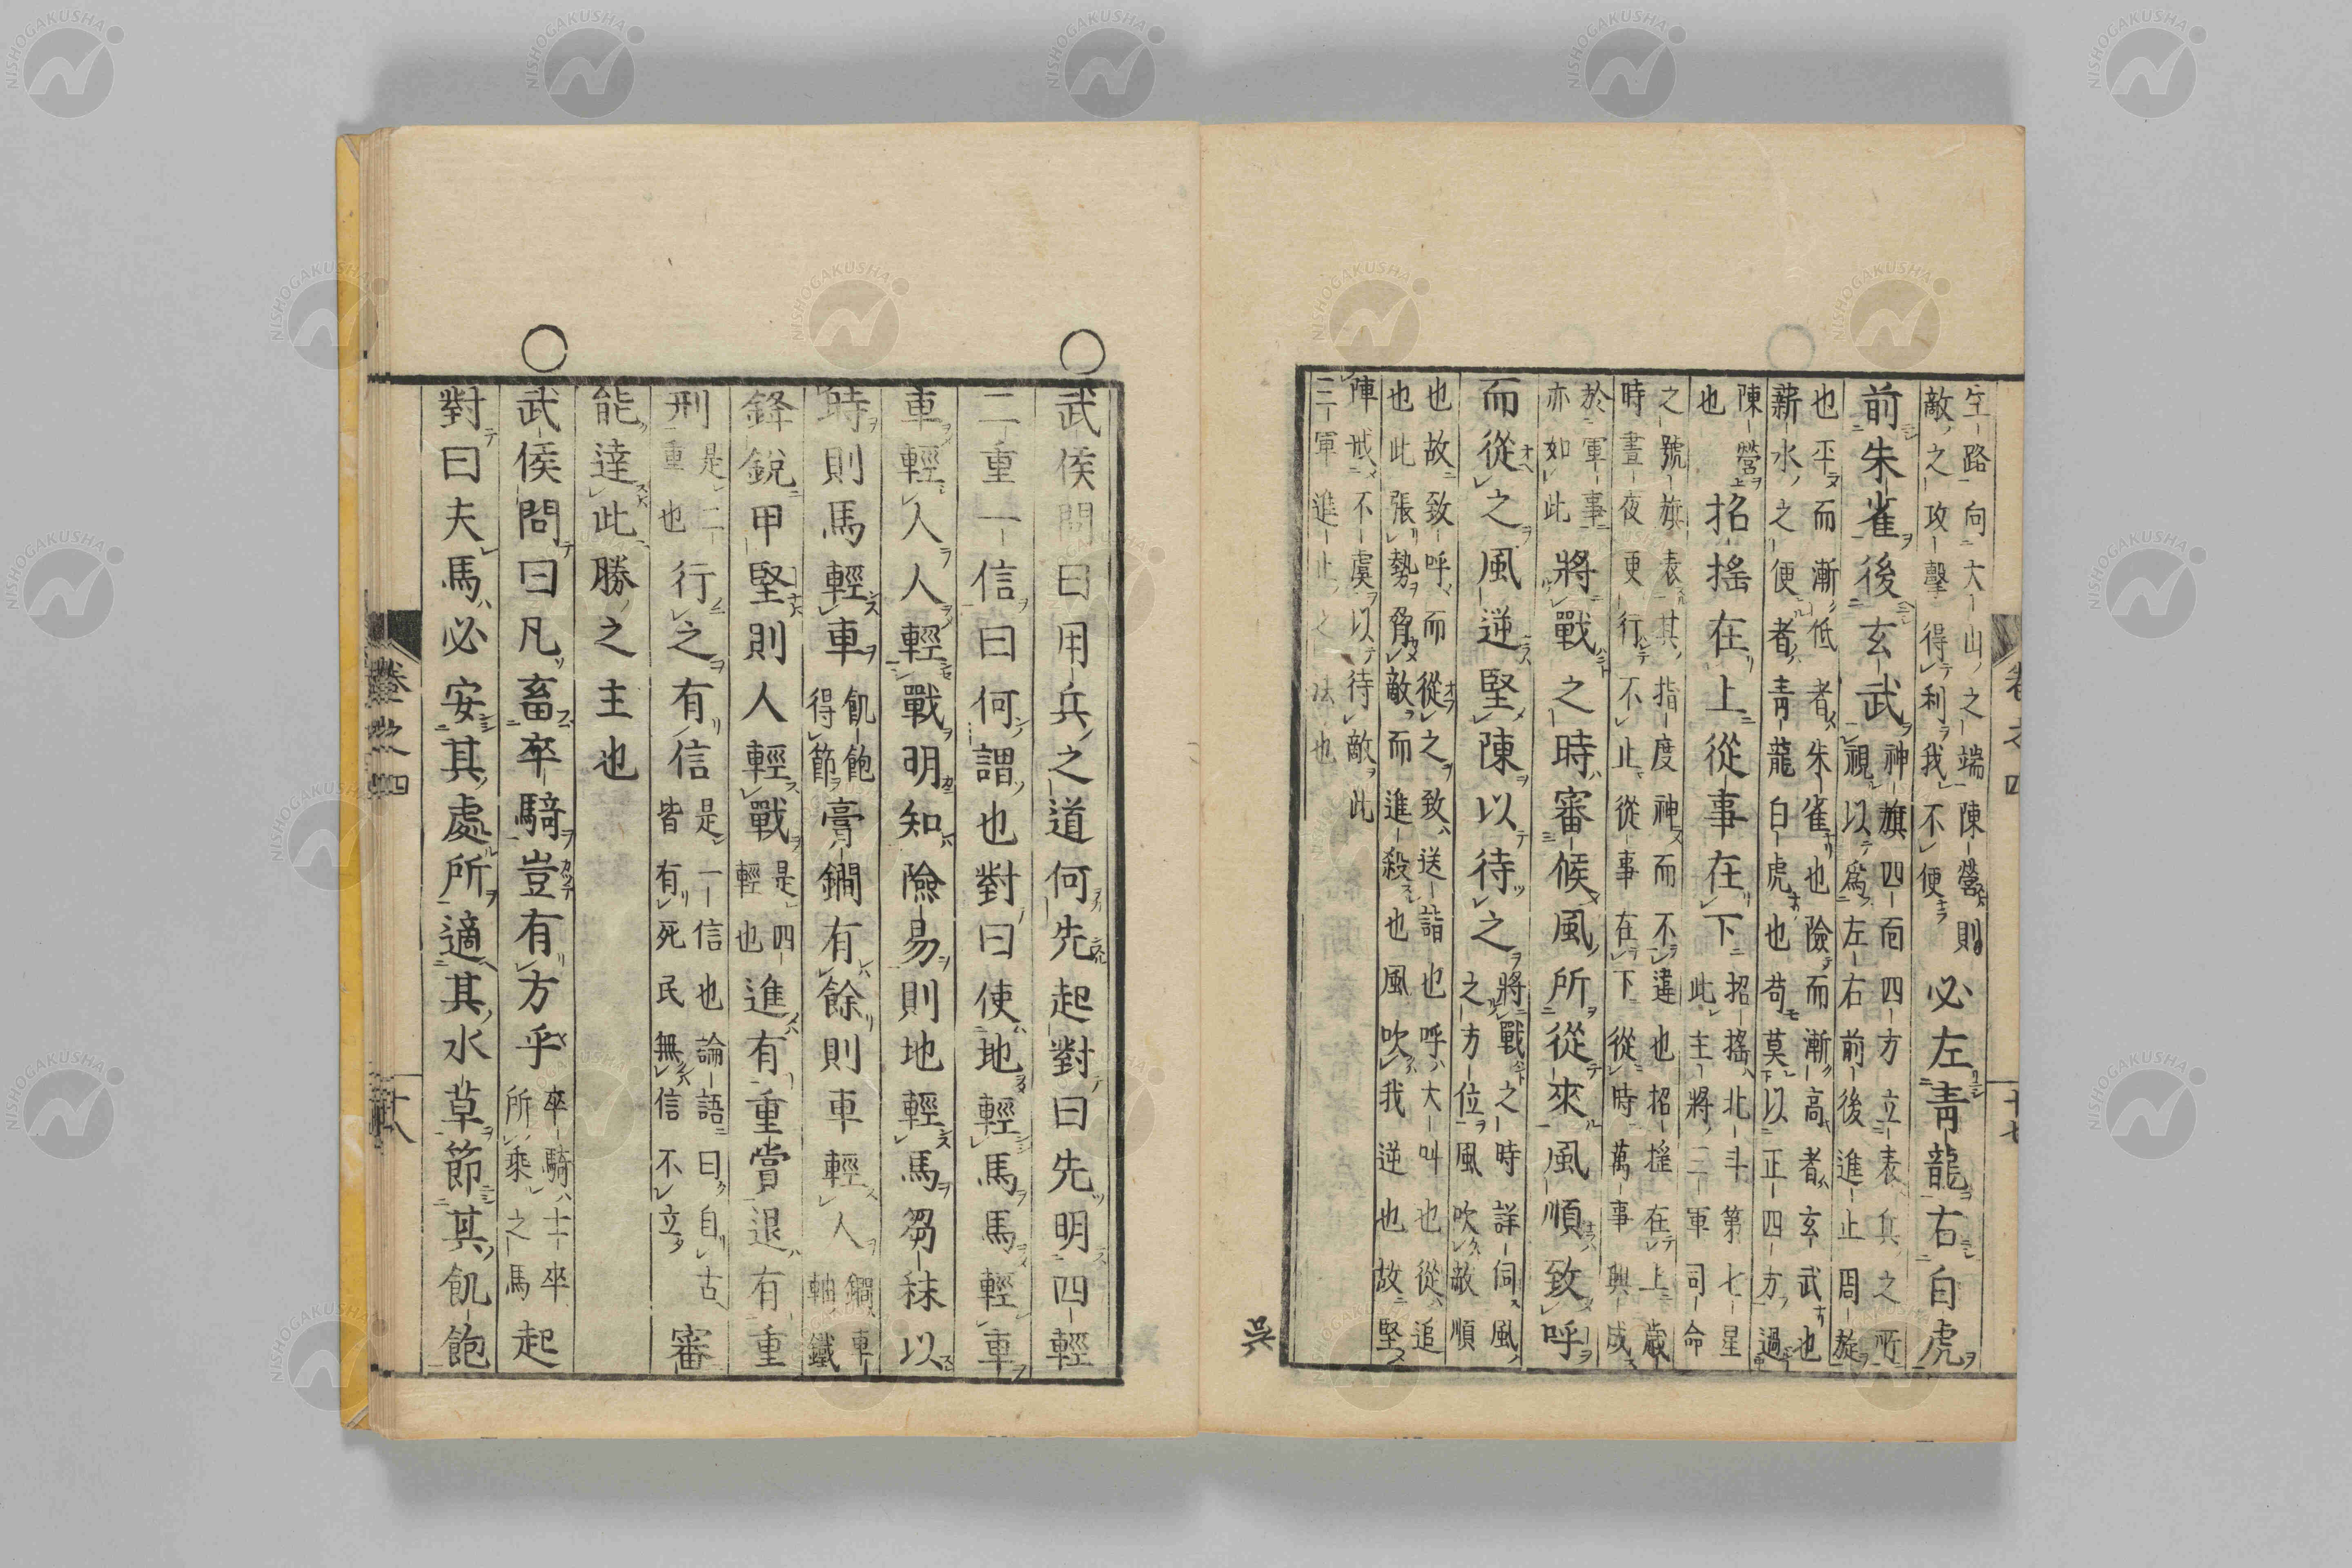 生路向大山之端陳營則
敵之攻擊得利我不便
必左青龍右白虎
前朱雀後玄武
神旗四面四方立表兵之所
視以爲左右前後進止周旋
也平而漸低者朱雀也險而漸高者玄武也
薪水之便者青龍白虎也苟莫以正四方過
陳營
也
招搖在上從事在下
招搖北斗第七星
此主將三軍司命
之號旗表其指度神而不違也招搖在上歲
時晝夜更行不止從事在下從時萬事興成
於軍事
亦如此
將戰之時審候風所從來風順致呼
而從之風逆堅陳以待之
將戰之時詳伺風
之方位風吹敵順
也故致呼而從之致送詣也呼大叫也從追
也此張勢脅敵而進殺也風吹我逆也故堅
陣戒不虞以待敵此
三軍進止之法也
卷之四
十七
吳
武侯問曰用兵之道何先起對曰先明四輕
二重一信曰何謂也對曰使地輕馬馬輕車
車輕人人輕戰明知險易則地輕馬芻秣以
時則馬輕車
飢飽
得節
膏鐗有餘則車輕人
鐗車
軸鐵
鋒銳甲堅則人輕戰
是四
輕也
進有重賞退有重
刑
是二
重也
行之有信
是一信也論語曰自古
皆有死民無信不立
審
能達此勝之主也
武侯問曰凡畜卒騎豈有方乎
卒騎士卒
所乘之馬
起
對曰夫馬必安其處所適其水草節其飢飽
卷之四
十八
NISHOGAKUSHA